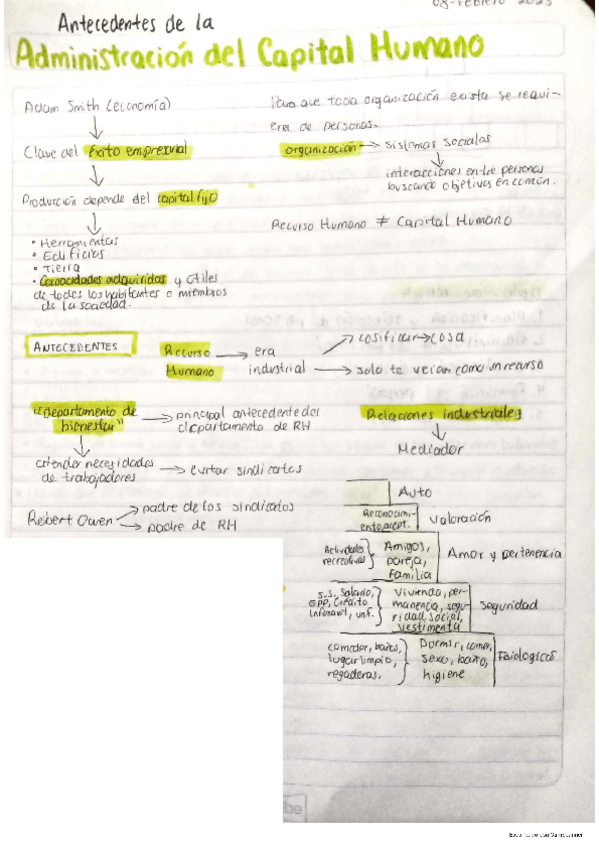 08-Febrero 2023
Antecedentes de la
Administración del Capital Humano
Adam Smith (economía)
Clave del éxito empresarial
Producción depende del capital fijo
• Herramientas
• Edificios
• Tierra
• Capacidades adquiridas y útiles
de todos los habitantes o miembros
de la sociedad.
Para que toda organización exista se requi-
ere de personas.
organización → sistemas sociales
interacciones entre personas
buscando objetivos en común.
Recurso Humano ≠ Capital Humano
ANTECEDENTES
Recurso → era
Humano industrial
cosificar → cosa
solo te veian como un recurso
"departamento de
bienestar" → principal antecedente del
departamento de RH
atender necesidades
de trabajadores → evitar sindicatos
Robert Owen
padre de los sindicatos
padre de RH
Relaciones industriales
Mediador
Auto
Reconocimi-
ento, acept.
Valoración
Actividades
recreativas
Amigos,
pareja,
familia
Amor y pertenencia
S.S., Salario,
Crédito
Infonavit, unf.
Vivienda, per-
manencia, segu-
ridad social,
vestimenta
Seguridad
comedor, baños,
lugar limpio,
regaderas.
Dormir, comer,
sexo, baño,
higiene
Fisiológicas